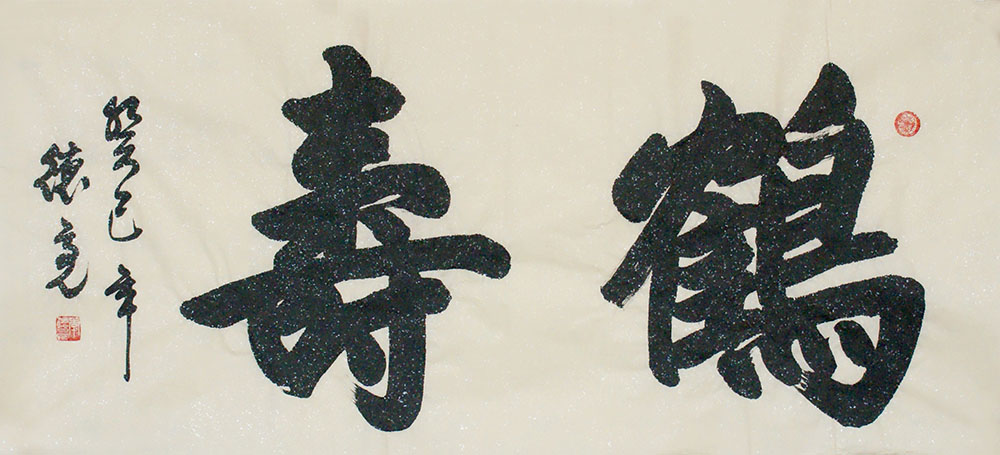 鶴壽
癸巳年
德亮